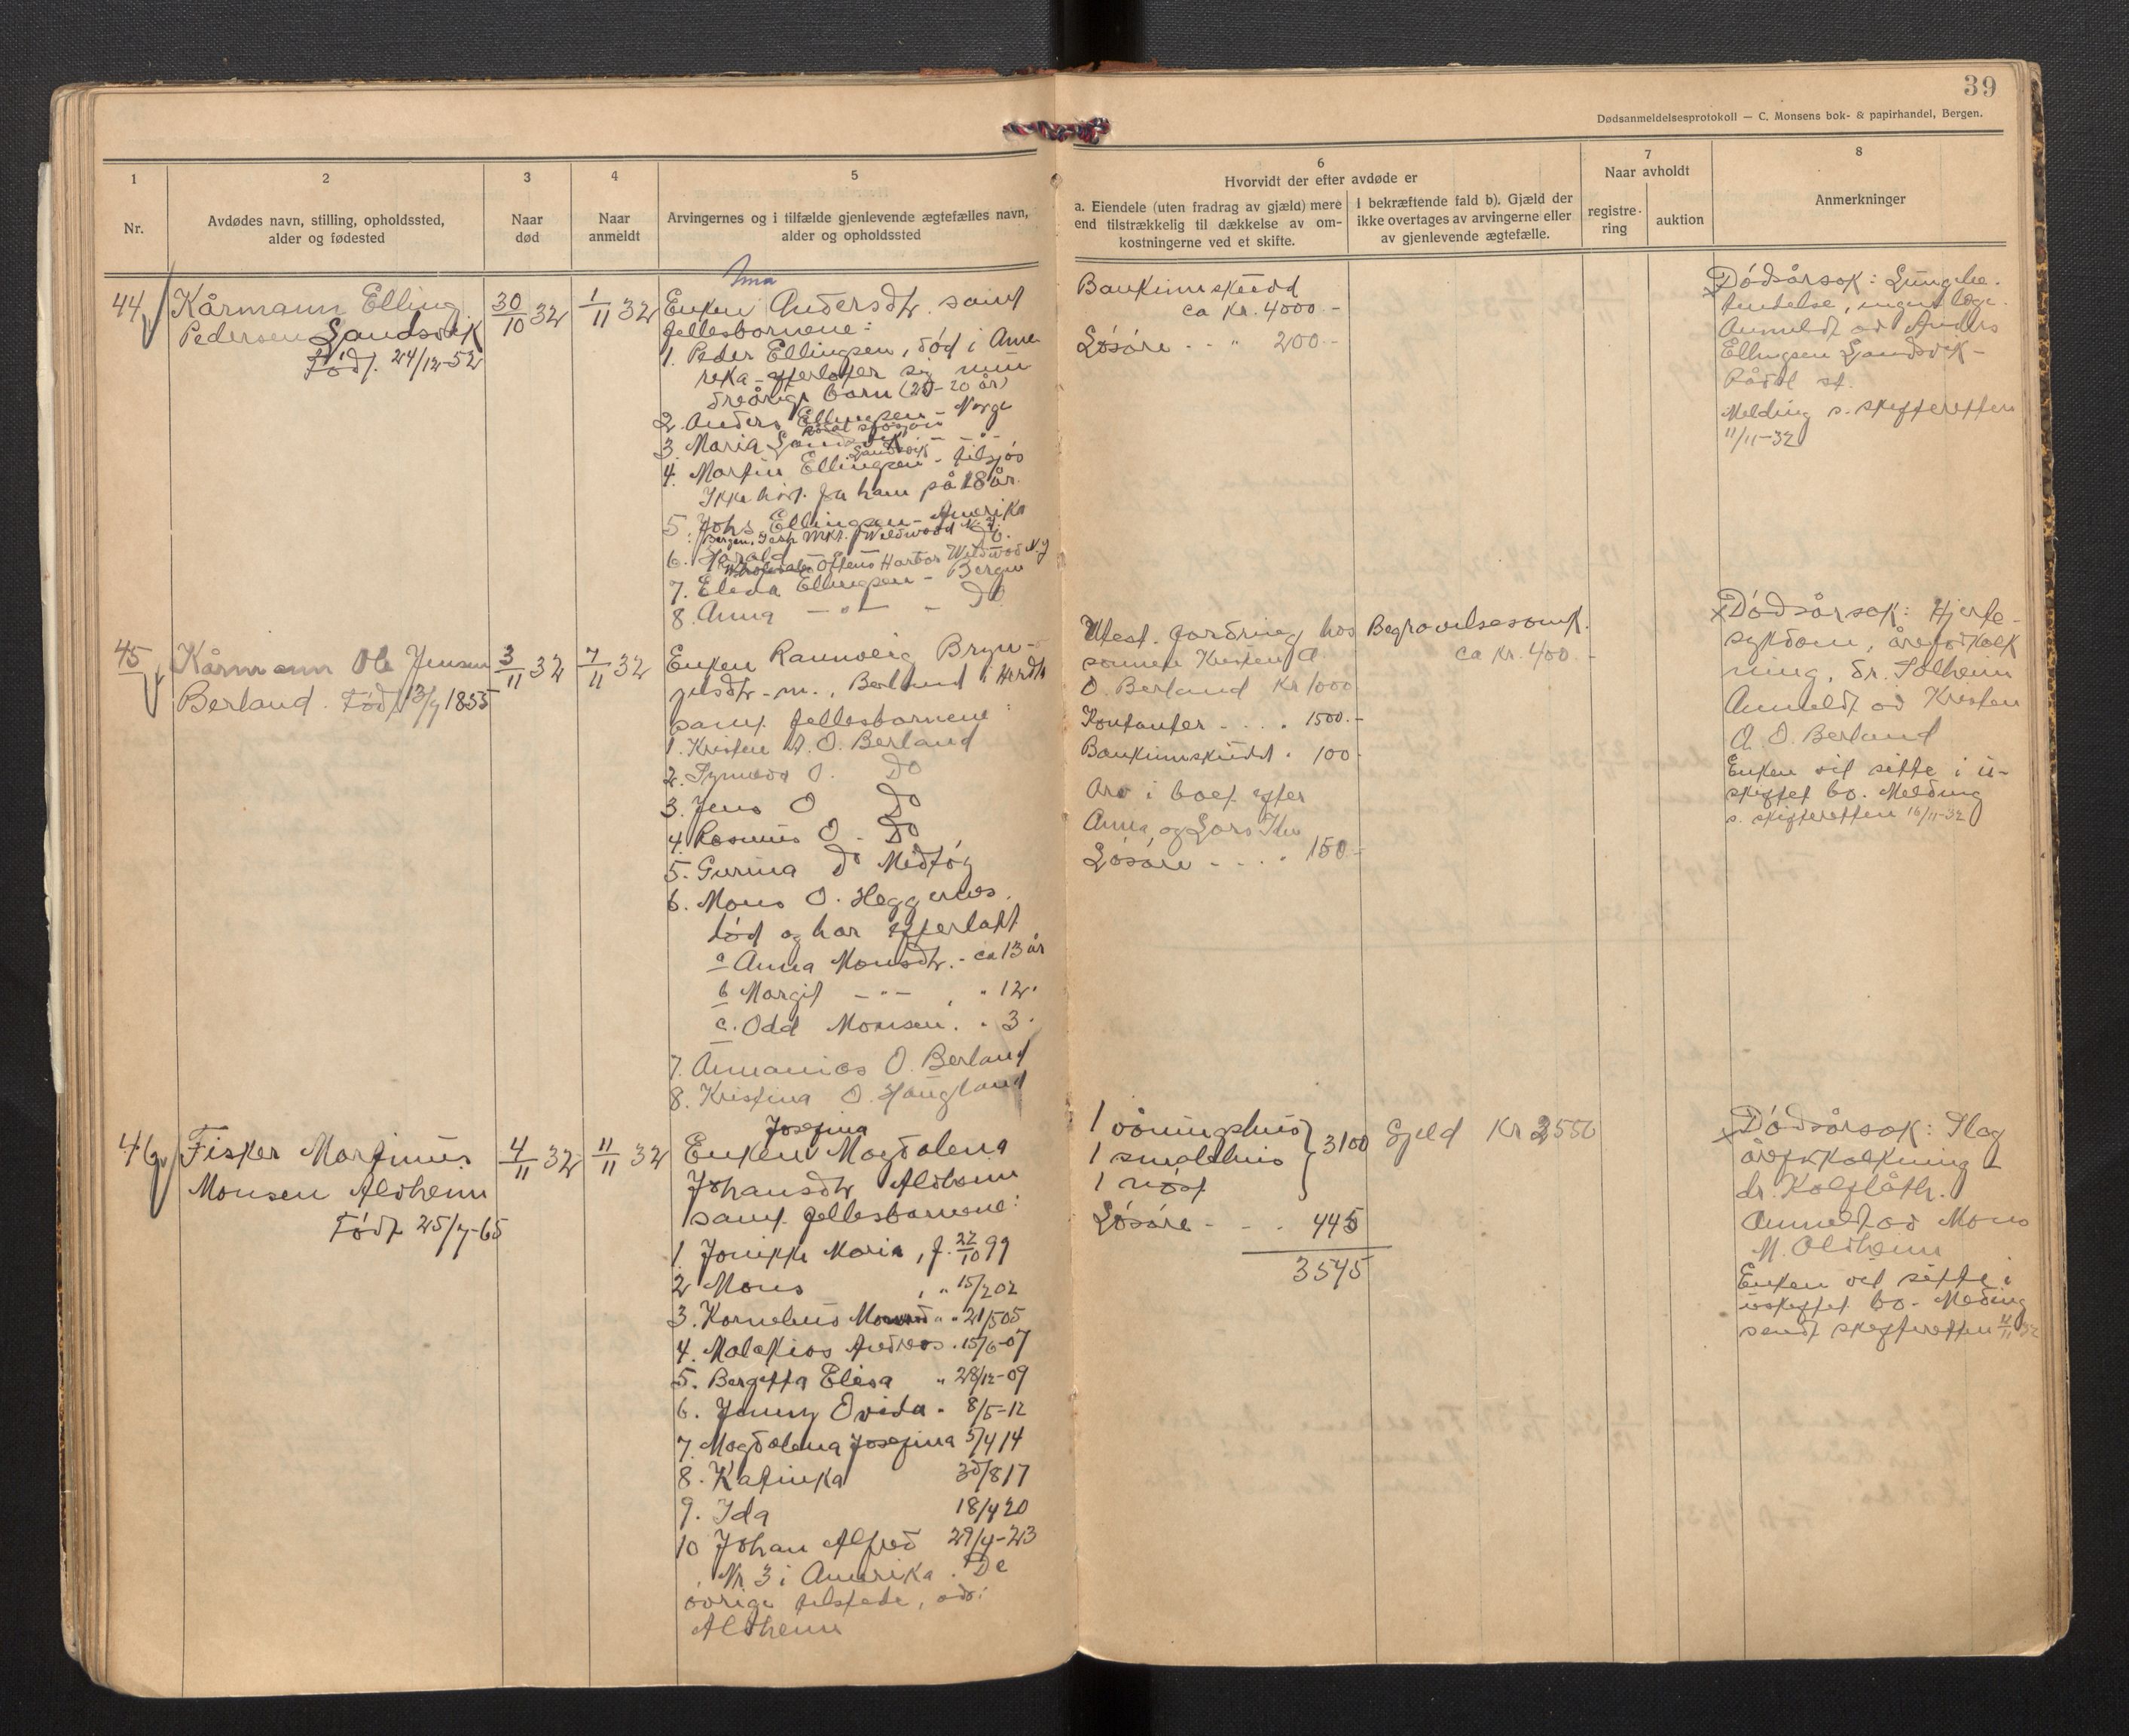 39
Dødsanmeldelsesprotokoll — C. Monsens bok- & papirhandel, Bergen.
1
Nr.
2
Avdødes navn, stilling, opholdssted,
alder og fødested
3
Naar
død
4
Naar
anmeldt
5
Arvingernes og i tilfælde gjenlevende ægtefælles navn,
alder og opholdssted
6
Hvorvidt der efter avdøde er
a. Eiendele (uten fradrag av gjæld) mere
end tilstrækkelig til dækkelse av om-
kostningerne ved et skifte.
I bekræftende fald b). Gjæld der
ikke overtages av arvingerne eller
av gjenlevende ægtefælle.
7
Naar avholdt
registre-
ring
auktion
8
Anmerkninger
44
Kårmann Elling
Pedersen Landsvik
Född. 24/12-52
30/10 32
1/11 32
Enken Andersdtr. samt
fellesbornene:
1. Peder Ellingsen, död i Ame
rika - efterlater sig min
dreårige barn (20-20 år)
2. Anders Ellingsen - Norge
3. Maria
4. Martin Ellingsen - tilsjös
Ikke hört fra ham på 18 år.
5. Johs Ellingsen - Amerika
6. Harald
7. Elida Ellingsen - Bergen
8. Anna — " — - Do
Bankinnskudd
ca kr. 4000.-
Lösöre - - " 200.-
Dödsårsak: Lungebe-
tendelse, ingen læge.
Anmeldt av Anders
Ellingsen Landsvik -
Rådal st.
Melding s. skifteretten
11/11-32
45
Kårmann Ole Jensen
Berland. Född 13/9 1855
3/11 32
7/11 32
Enken Rannveig Bryn-
jelsdtr. m., Berland i Herdla
samt fellesbarnene:
1. Kristen A. O. Berland
2. Synneva O. Do
3. Jens O Do
4. Rasmus O - Do
5. Gurina Do Medtöy
6. Mons O. Heggernes.
död og har efterlatt
a Anna Monsdtr. - ca 13 år
b Margit — " — , " 12.
c. Odd Monsen. " 3.
7. Annanias O. Berland
8. Kristina O. Haugland
Utest. fordring hos
sönnen Kristen A.
O. Berland Kr 1000
Kontanter - - . . 1500.-
Bankinnskudd . 100.-
Arv i boet efter
Anna og Lars
Lösöre - - . . 150.-
Begravelsesomk.
ca kr. 400.-
Dödsårsak: Hjerte-
sykdom, åreforkalk
ning, dr. Solheim
Anmeldt av Kristen
A. O. Berland
Enken vil sitte i u-
skiftet bo. Melding
s. skifteretten 16/11-32
46
Fisker Martinus
Monsen Alvheim
Född 25/7-65
4/11 32
11/11 32
Josefina
Enken Magdalena
Johansdtr Alvheim
samt fellesbarnene:
1. Jonikke Maria, f. 22/10 99
2 Mons , " 15/2 02
3. Kornelius " 21/5 05
4. Malakias Andreas . 15/6-07
5. Bergitta Elisa " 28/12-09
6. Jenny Ovida . 8/5-12
7. Magdalena Josefina 5/4 14
8. Katinka 30/8 17
9. Ida 18/4 20
10 Johan Alfred 29/4-23
Nr 3 i Amerika. De
övrige tilstede, adr:
Alvheim
1 våningshus
1 smalehus
1 nöst
3100
Lösöre - - . 445
3545
Gjeld Kr 2550
Dödsårsak: Slag
åreforkalkning -
dr. Kalflåth.
Anmeldt av Mons
M. Alvheim
Enken vil sitte i
uskiftet bo. Melding
sendt skifteretten 11/11 32